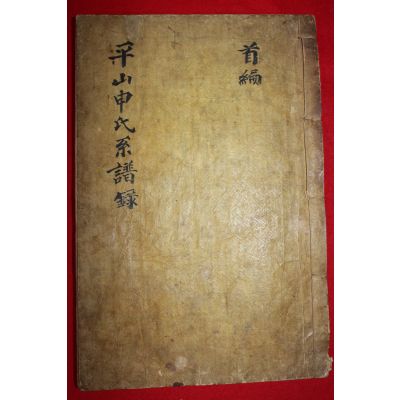 首編
平山申氏系譜錄